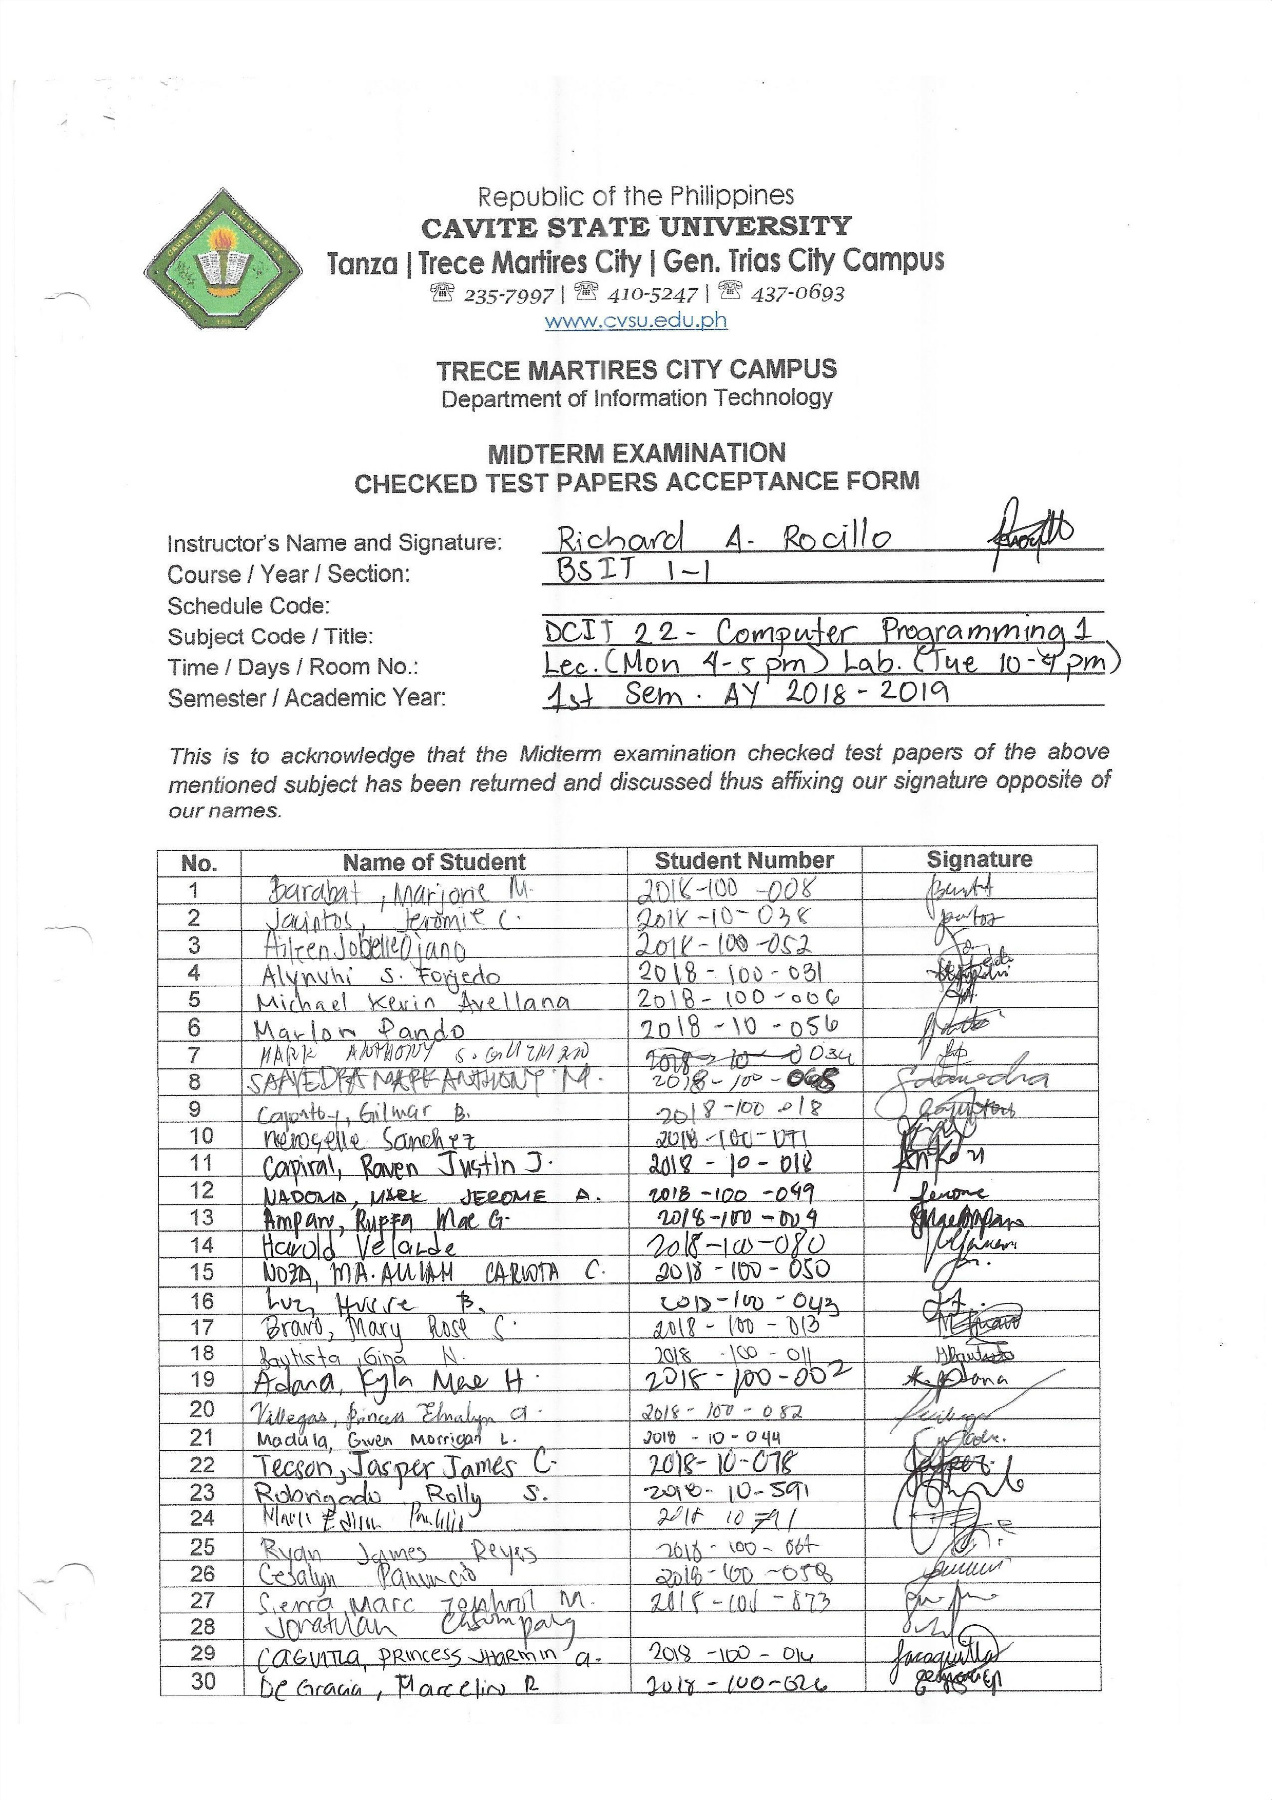 Republic of the Philippines
CAVITE STATE UNIVERSITY
Tanza | Trece Martires City | Gen. Trias City Campus
☏ 235-7997 | ☏ 410-5247 | ☏ 437-0693
www.cvsu.edu.ph
TRECE MARTIRES CITY CAMPUS
Department of Information Technology
MIDTERM EXAMINATION
CHECKED TEST PAPERS ACCEPTANCE FORM
Instructor's Name and Signature: Richard A. Rocillo
Course / Year / Section: BSIT 1-1
Schedule Code:
Subject Code / Title: DCIT 22 - Computer Programming 1
Time / Days / Room No.: Lec. (Mon 4-5 pm) Lab. (Tue 10-4 pm)
Semester / Academic Year: 1st Sem. AY 2018-2019
This is to acknowledge that the Midterm examination checked test papers of the above
mentioned subject has been returned and discussed thus affixing our signature opposite of
our names.
No. Name of Student Student Number Signature
1 Barabat, Marione M. 2018-100-008
2 Jacintos, Jeromie C. 2018-10-038
3 Aileen Jobelle Ojano 2018-100-052
4 Alynvhi S. Forjedo 2018-100-031
5 Michael Kevin Avellana 2018-100-006
6 Marlon Pando 2018-10-056
7 MARK ANTHONY S. GUZMAN 0034
8 SAAVEDRA MARK ANTHONY M. 2018-100-068 Saavedra
9 Gilmar B. 2018-100-018
10 Nerogelle Sanchez 2018-100-071
11 Capiral, Raven Justin J. 2018-10-018
12 NADOMA, MARK JEROME A. 2018-100-049 Jerome
13 Amparo, Ruffa Mae G. 2018-100-004
14 Harold Velarde 2018-100-080
15 NOZA, MA. CARLOTA C. 2018-100-050
16 Luz, B. 2018-100-043
17 Bravo, Mary Rose S. 2018-100-013
18 Bautista, Gina N. 2018-100-011
19 Adana, Kyla Mae H. 2018-100-002
20 Villegas, Princess Elmalyn A. 2018-100-082
21 Madula, Gwen Morrigan L. 2018-10-044
22 Tecson, Jasper James C. 2018-10-078
23 Robrigado Rolly S. 2018-10-591
24 2018 10 791
25 Ryan James Reyes 2018-100-067
26 Cesalyn Panuncio 2018-100-058
27 Sierra Marc M. 2018-101-873
28 Jonathan
29 CAGUITLA, PRINCESS JHARMIN A. 2018-100-016
30 De Gracia, Marcelino R 2018-100-026